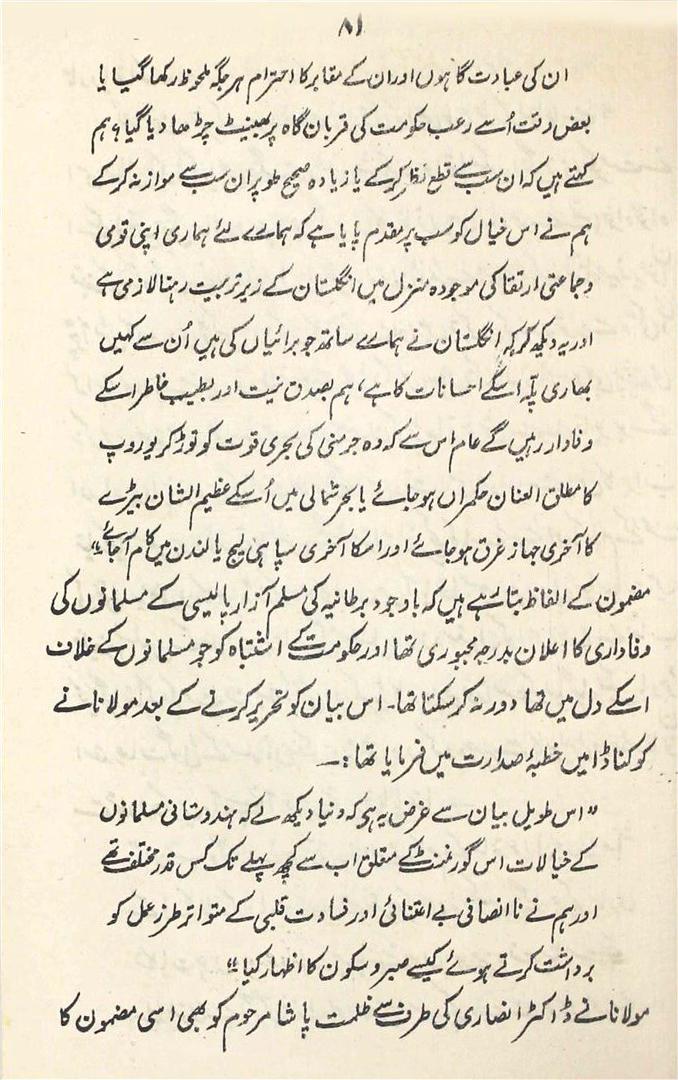 ۸۱
ان کی عبادت گاہوں اور ان کے مقابر کا احترام ہر جگہ ملحوظ رکھا گیا یا
بعض وقت اُسے رعب حکومت کی قربان گاہ پر بھینٹ چڑھا دیا گیا؟ ہم
کہتے ہیں کہ ان سب سے قطع نظر کر کے یا زیادہ صحیح طور پر ان سب سے موازنہ کر کے
ہم نے اس خیال کو سب پر مقدم پایا ہے کہ ہمارے لئے ہماری اپنی قومی
و جماعتی ارتقا کی موجودہ منزل میں انگلستان کے زیر تربیت رہنا لازمی ہے
اور یہ دیکھ کر کہ انگلستان نے ہمارے ساتھ جو برائیاں کی ہیں اُن سے کہیں
بھاری پلّہ اسکے احسانات کا ہے، ہم بصدق نیت اور بطیب خاطر اسکے
وفادار رہیں گے عام اس سے کہ وہ جرمنی کی بحری قوت کو توڑ کر یوروپ
کا مطلق العنان حکمراں ہو جائے یا بحر شمالی میں اُسکے عظیم الشان بیڑے
کا آخری جہاز غرق ہو جائے اور اسکا آخری سپاہی لیج یا لندن میں کام آ جائے"
مضمون کے الفاظ بتا رہے ہیں کہ باوجود برطانیہ کی مسلم آزار پالیسی کے مسلمانوں کی
وفاداری کا اعلان بدرجہ مجبوری تھا اور حکومت کے اشتباہ کو جو مسلمانوں کے خلاف
اسکے دل میں تھا دور نہ کر سکتا تھا۔ اس بیان کو تحریر کرنے کے بعد مولانا نے
کوکناڈا میں خطبۂ صدارت میں فرمایا تھا:۔
"اس طویل بیان سے غرض یہ ہی کہ دنیا دیکھ لے کہ ہندوستانی مسلمانوں
کے خیالات اس گورنمنٹ کے متعلق اب سے کچھ پہلے تک کس قدر مختلف تھے
اور ہم نے نا انصافی بے اعتنائی اور قساوت قلبی کے متواتر طرز عمل کو
برداشت کرتے ہوئے کیسے صبر و سکون کا اظہار کیا"
مولانا نے ڈاکٹر انصاری کی طرف سے طلعت پاشا مرحوم کو بھی اسی مضمون کا